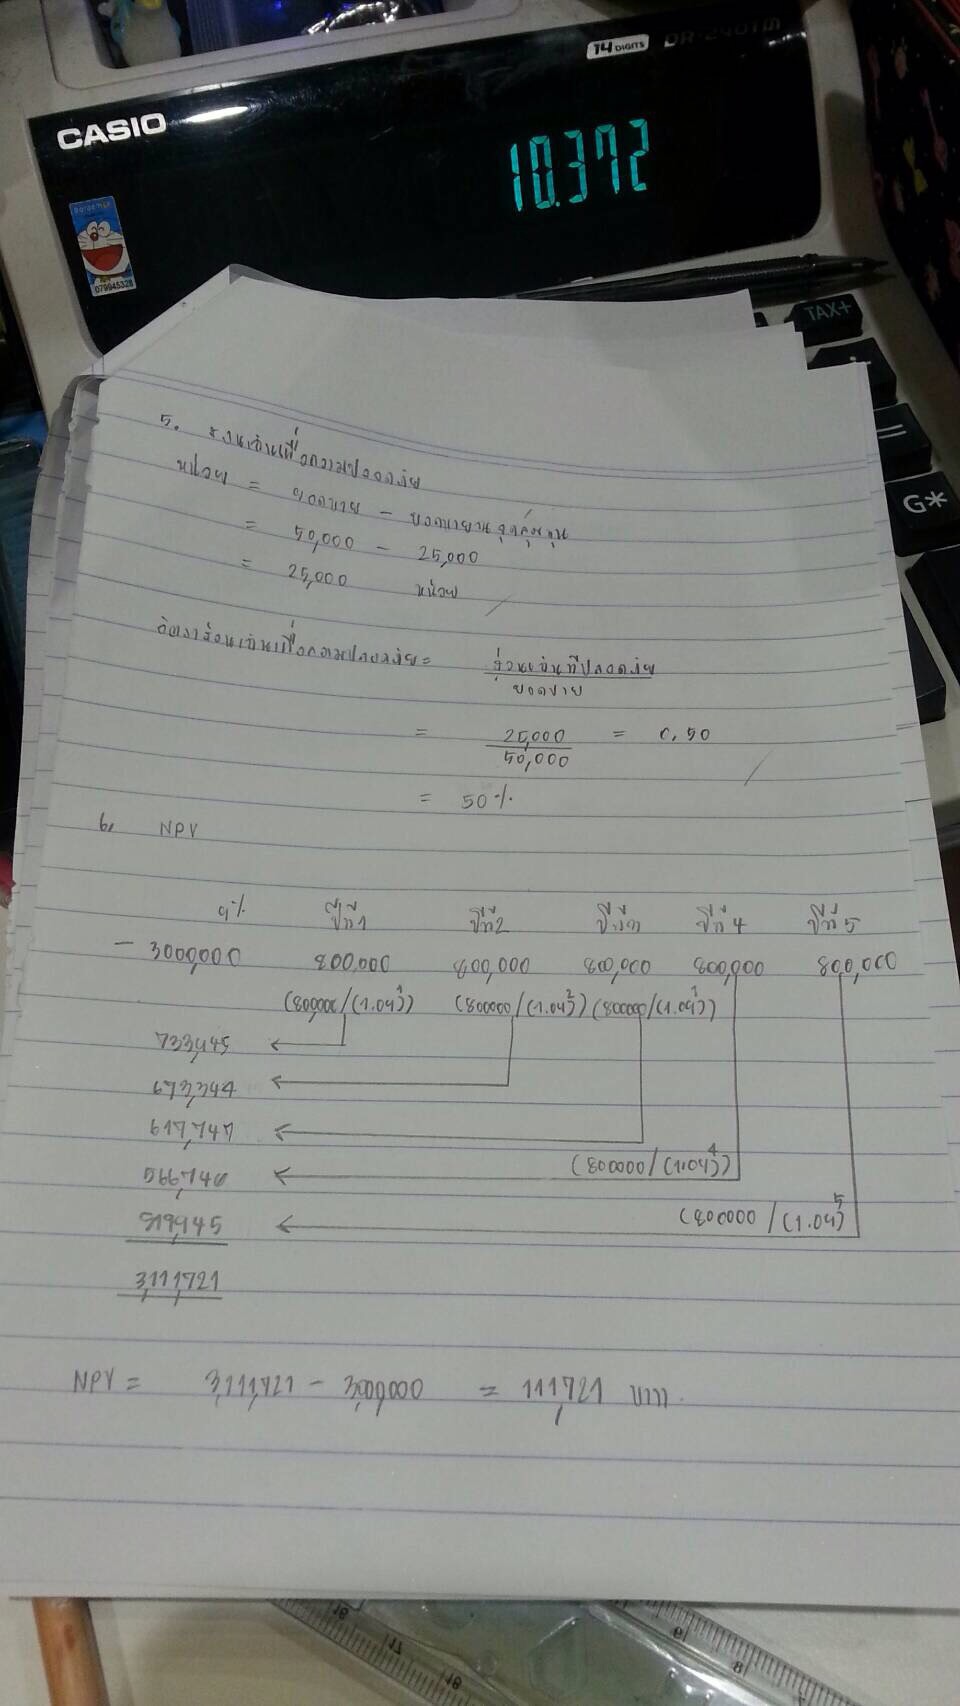 14 DIGITS DR-240TM
CASIO
10.372
Doraemon
079945328
TAX+
=
G*
5. ส่วนเกินเพื่อความปลอดภัย
หน่วย = ยอดขาย - ยอดขาย ณ จุดคุ้มทุน
= 50,000 - 25,000
= 25,000 หน่วย
อัตราส่วนเกินเพื่อความปลอดภัย = ส่วนเกินที่ปลอดภัย
ยอดขาย
= 25,000 = 0.50
50,000
= 50%
6. NPV
9% ปีที่1 ปีที่2 ปีที่3 ปีที่4 ปีที่5
- 3,000,000 800,000 800,000 800,000 800,000 800,000
(800,000/(1.09)¹) (800000/(1.09)²) (800000/(1.09)³)
733,945
673,344
617,747
(800000/(1.09)⁴)
566,740
(800000/(1.09)⁵
519,945
3,111,721
NPV = 3,111,721 - 3,000,000 = 111,721 บาท
16
17
18
9
8